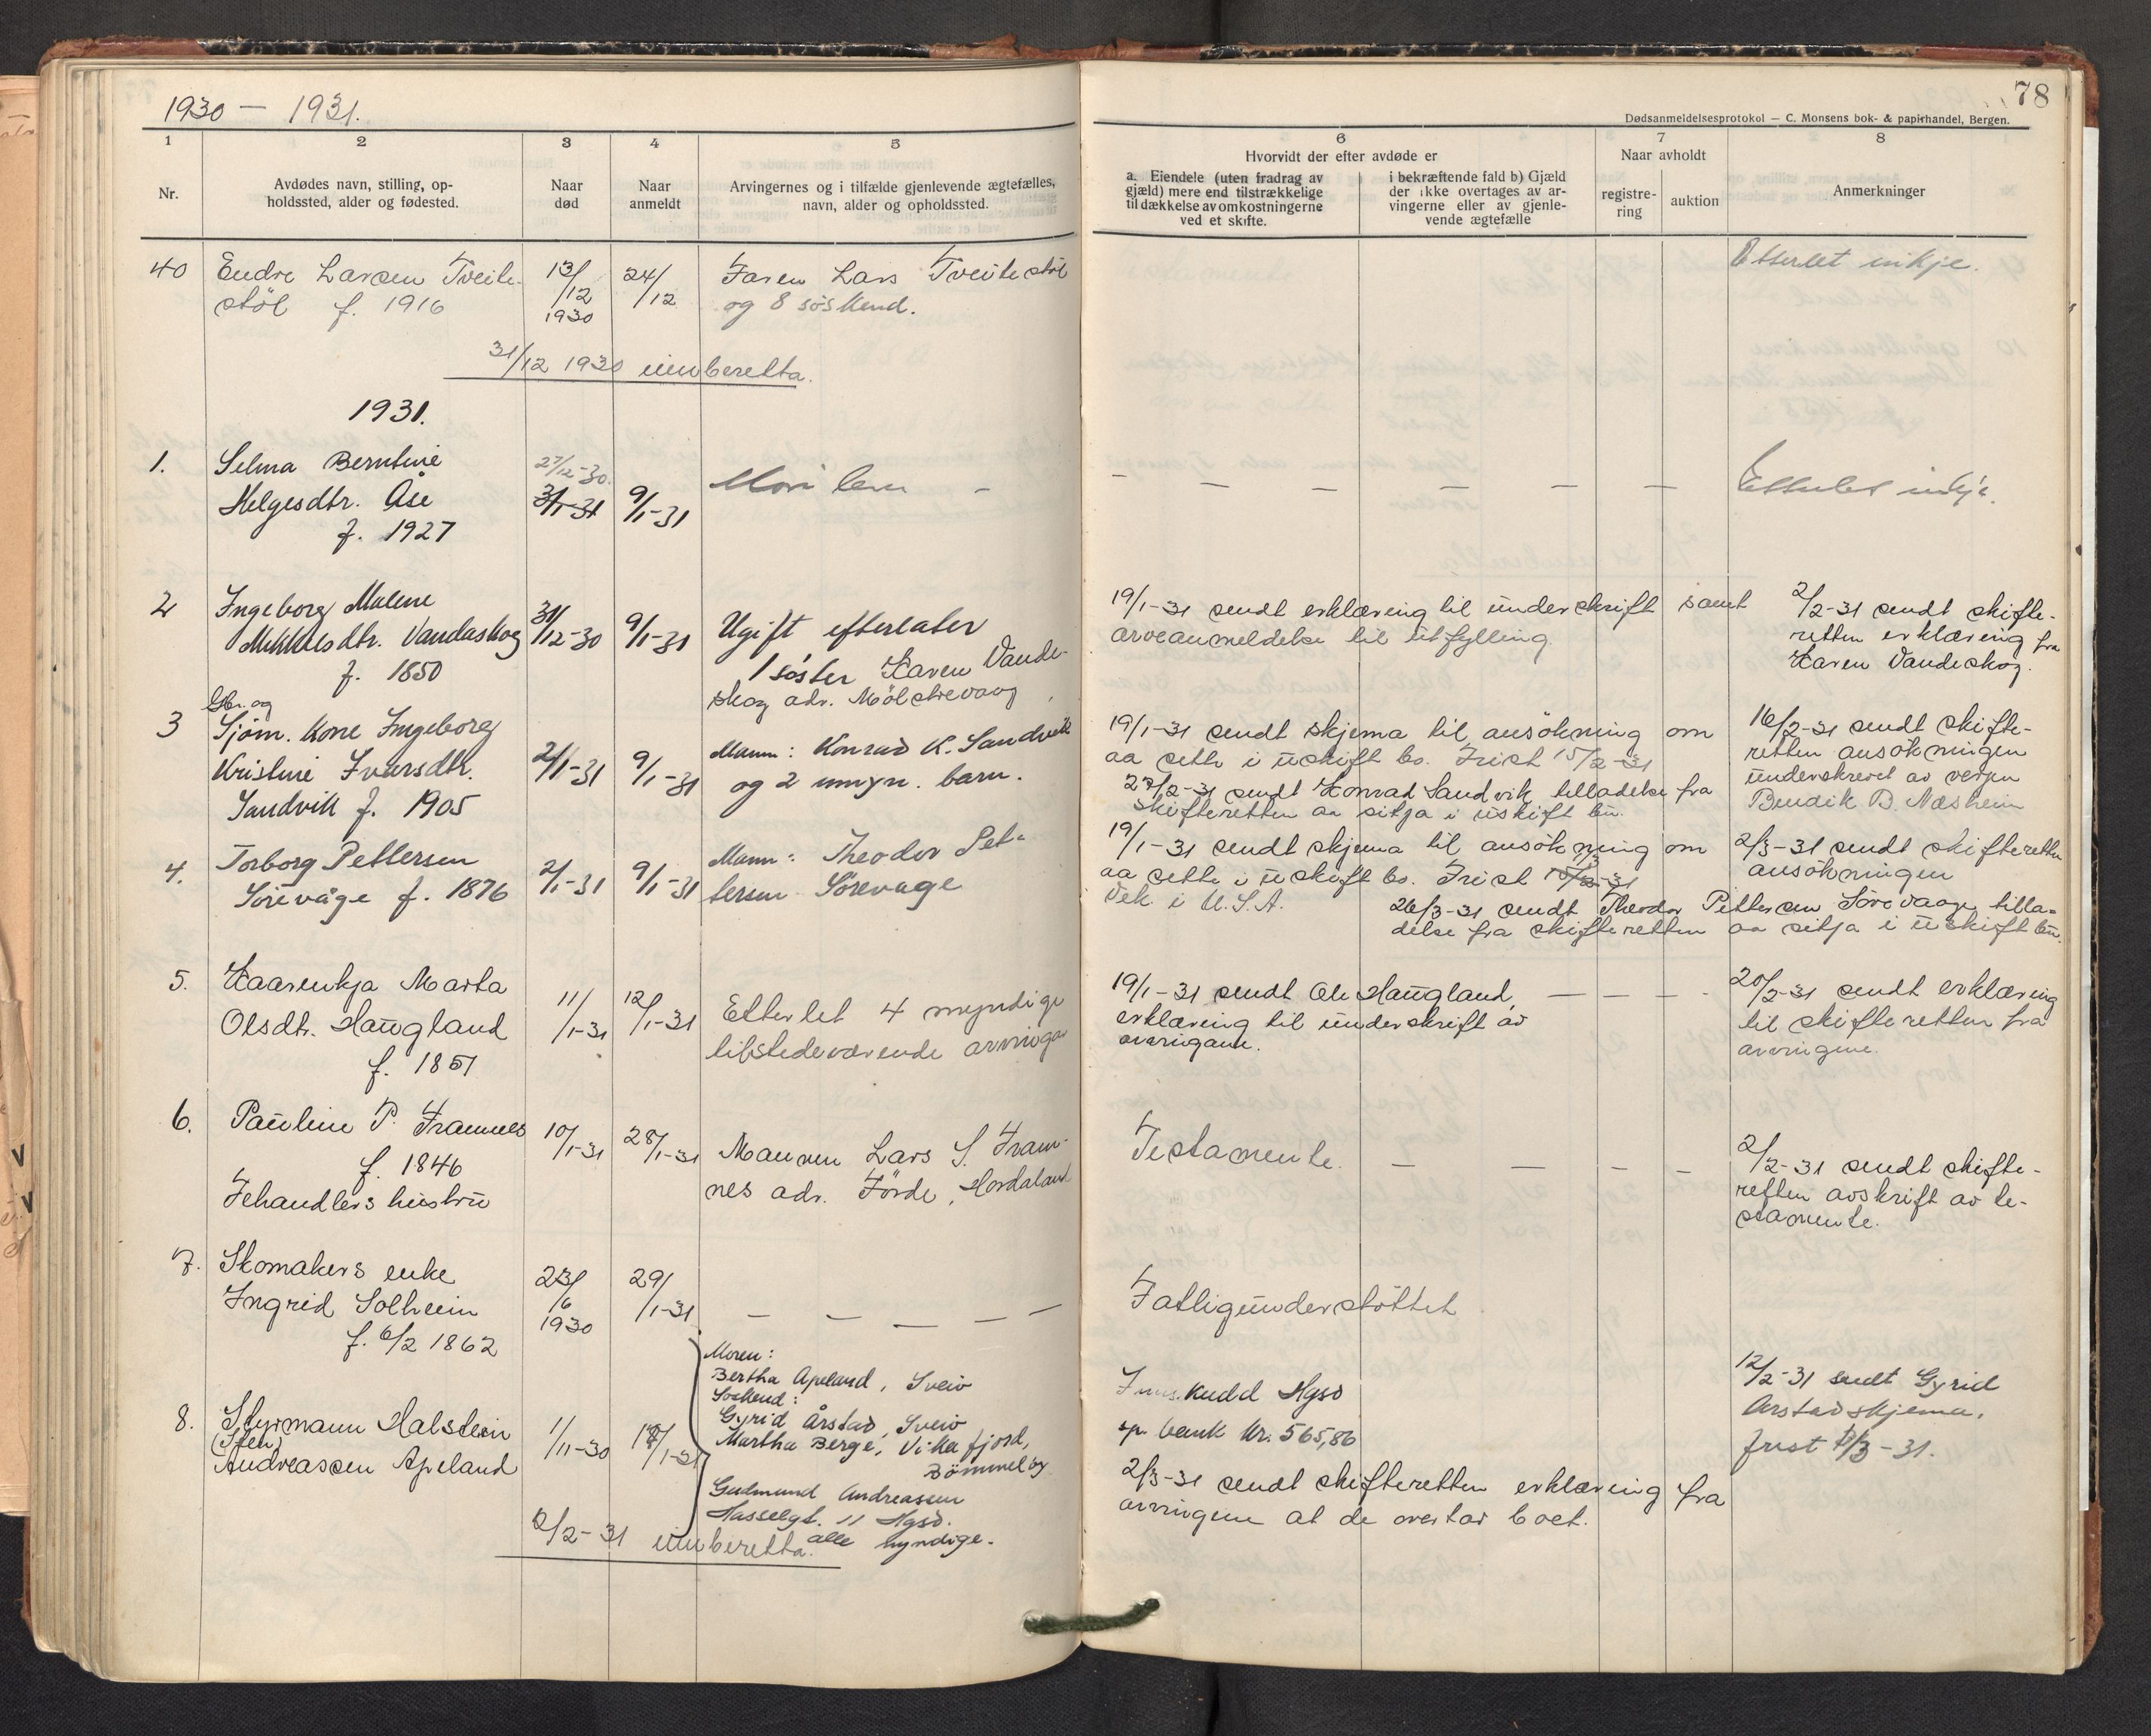 1930 — 1931.
78
Dødsanmeldelsesprotokol — C. Monsens bok- & papirhandel, Bergen.
1 2 3 4 5 6 7 8
Nr.
Avdødes navn, stilling, op-
holdssted, alder og fødested.
Naar
død
Naar
anmeldt
Arvingernes og i tilfælde gjenlevende ægtefælles,
navn, alder og opholdssted.
Hvorvidt der efter avdøde er
a. Eiendele (uten fradrag av
gjæld) mere end tilstrækkelige
til dækkelse av omkostningerne
ved et skifte.
i bekræftende fald b) Gjæld
der ikke overtages av ar-
vingerne eller av gjenle-
vende ægtefælle
Naar avholdt
registre-
ring
auktion
Anmerkninger
40 Endre Larsen Tveite-
støl f. 1916
13/
/12
1930
24/
/12
Faren Lars Tveitestøl
og 8 søskend.
Etterlet inkje.
31/12 1930 innberetta.
1931.
1. Selma Berntine
Helgesdtr. Åse
f. 1927
27/12-30.
3/1-31
9/1-31
— — — — — —
Etterlet inkje.
2 Ingeborg Malene
Mikkelsdtr. Vandaskog
f. 1850
31/12-30
9/1-31
Ugift efterlater
1 søster Karen Vande-
skog adr. Mølstrevaag
19/1-31 sendt erklæring til underskrift samt
arveanmeldelse til utfylling.
2/2-31 sendt skifte-
retten erklæring fra
Karen Vandeskog.
3 Gbr. og
Sjøm. kone Ingeborg
Kristine Ivarsdtr.
Sandvik f. 1905
2/1-31
9/1-31
Mann: Konrad K. Sandvik
og 2 umyn. barn.
19/1-31 sendt skjema til ansøkning om
aa sette i uskift bo. Frist 15/2-31
27/2-31 sendt Konrad Sandvik tilladelse fra
skifteretten aa sitja i uskift bu.
16/2-31 sendt skifte-
retten ansøkningen
underskrevet av verjen
Bendik B. Næsheim
4. Torborg Pettersen
Sørevåge f. 1876
2/1-31
9/1-31
Mann: Theodor Pet-
tersen Sørevage
19/1-31 sendt skjema til ansøkning om
aa sette i uskift bo. Frist 15/3-31
Vek i U.S.A.
26/3-31 sendt Theodor Pettersen Sørevaage tilla-
delse fra skifteretten aa sitja i uskift bu.
2/3-31 sendt skifteretten
ansøkningen
5. Kaarenkja Marta
Olsdtr. Haugland
f. 1851
11/
/1-31
12/1-31
Etterlet 4 myndige
tilstedeværende arvingar
19/1-31 sendt Ole Haugland, — — — -
erklæring til underskrift av
arvingane.
20/2-31 sendt erklæring
til skifteretten fra
arvingene.
6. Pauline P. Framnes
f. 1846
Fehandlers hustru
10/1-31
28/1-31
Mannen Lars S. Fram-
nes adr. Førde, Hordaland
Testamente. — — — —
2/2-31 sendt skifte-
retten avskrift av te-
stamente.
7. Skomakers enke
Ingrid Solheim
f. 6/2 1862
23/
/6
1930
29/
/1-31
— — — — —
Fattigunderstøttet
8. Styrmann Halstein
(Sten)
Andreassen Apeland
1/
/11-30
Moren:
Bertha Apeland, Sveio
Søskend:
Gyrid Årstad, Sveio
Martha Berge, Vikafjord,
Bømmeløy
Gudmund Andreassen
Hasselgt. 11 Hgsd.
alle myndige.
Innskudd Hgsd
sp. bank kr. 565,86
2/3-31 sendt skifteretten erklæring fra
arvingene at de overtar boet.
12/2-31 sendt Gyrid
Årstad skjema.
frist 1/3-31.
2/2-31 innberetta.